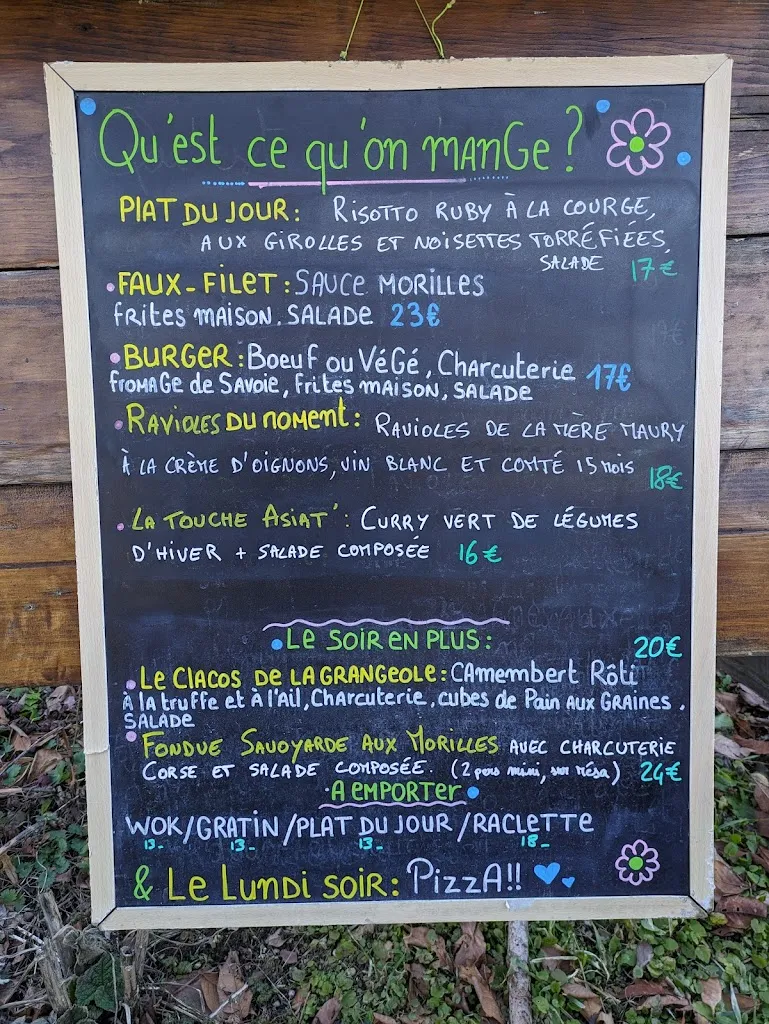 Qu'est ce qu'on mange ?
PLAT DU JOUR : RISOTTO RUBY À LA COURGE,
AUX GIROLLES ET NOISETTES TORRÉFIEES,
SALADE 17€
FAUX-FILET : SAUCE MORILLES
frites maison. SALADE 23€
BURGER : Boeuf ou Végé, Charcuterie 17€
fromage de Savoie, frites maison, SALADE
RAVIOLES DU MOMENT : RAVIOLES DE LA MÈRE MAURY
À LA CRÈME D'OIGNONS, VIN BLANC ET COMTÉ 15 MOIS 18€
LA TOUCHE ASIAT' : CURRY VERT DE LÉGUMES
D'HIVER + SALADE COMPOSÉE 16€
LE SOIR EN PLUS :
20€
Le Clacos DE LA GRANGEOLE : CAmembert Rôti
À la truffe et à l'Ail, Charcuterie, cubes de Pain Aux Graines.
SALADE
FONDUE SAVOYARDE AUX MORILLES AVEC CHARCUTERIE
CORSE ET SALADE COMPOSÉE. (2 pers mini, sur résa) 24€
A EMPORTER
WOK/GRATIN/PLAT DU JOUR/RACLETTE
13_ 13_ 13_ 18_
& Le Lundi soir : PizzA!!